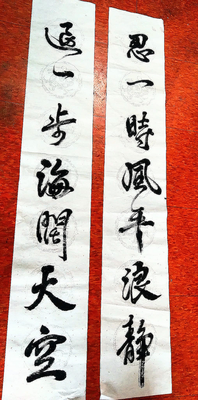 忍一時風平浪靜
退一步海闊天空